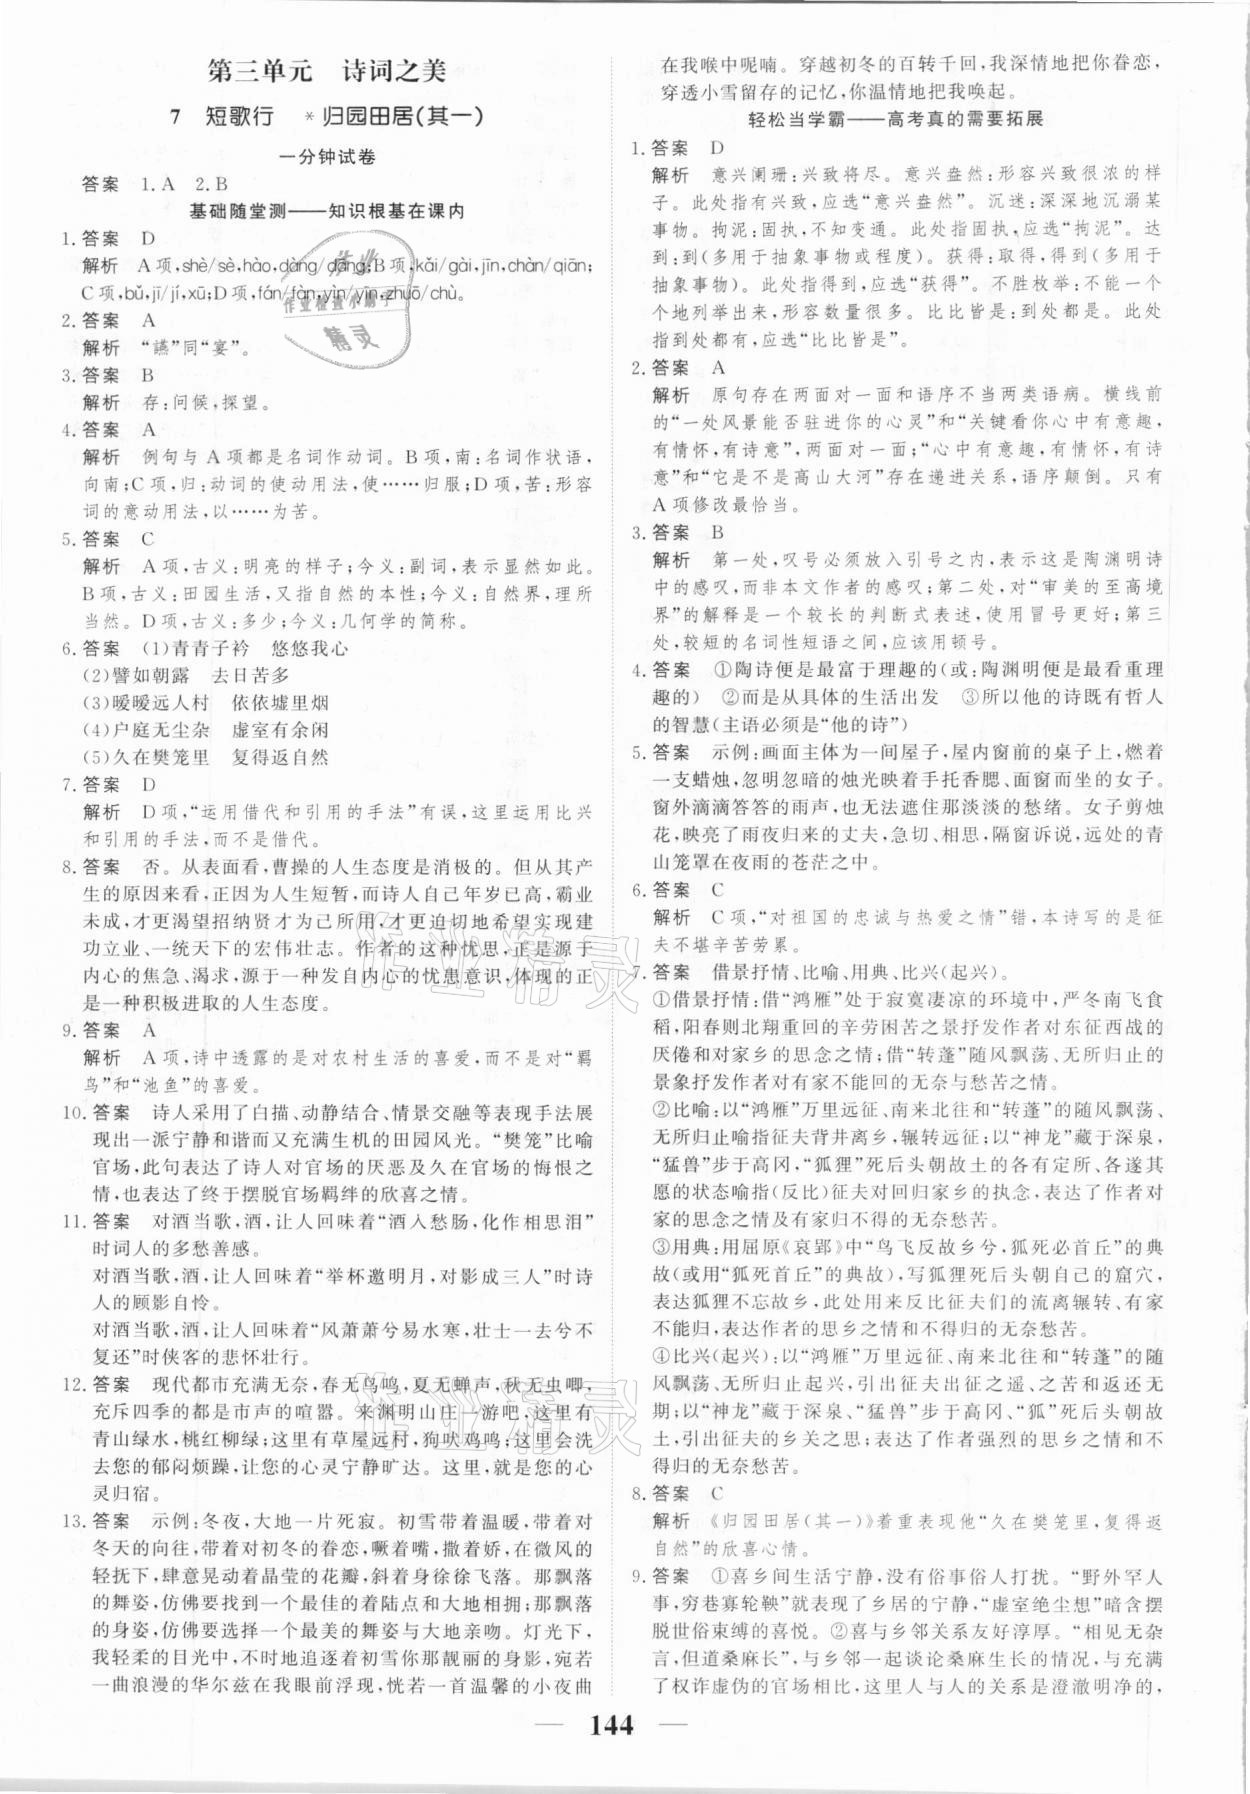 第三单元　诗词之美
7　短歌行　*归园田居(其一)
一分钟试卷
答案　1. A　2. B
基础随堂测——知识根基在课内
1. 答案　D
解析　A项,shè/sè,hào,dàng/dāng;B项,kǎi/gài,jīn,chàn/qiān;
C项,bǔ,jī/jí,xū;D项,fán/fàn,yìn/yīn,zhuō/chù。
2. 答案　A
解析　“讌”同“宴”。
3. 答案　B
解析　存:问候,探望。
4. 答案　A
解析　例句与A项都是名词作动词。B项,南:名词作状语,
向南;C项,归:动词的使动用法,使……归服;D项,苦:形容
词的意动用法,以……为苦。
5. 答案　C
解析　A项,古义:明亮的样子;今义:副词,表示显然如此。
B项,古义:田园生活,又指自然的本性;今义:自然界,理所
当然。D项,古义:多少;今义:几何学的简称。
6. 答案　(1)青青子衿　悠悠我心
(2)譬如朝露　去日苦多
(3)暧暧远人村　依依墟里烟
(4)户庭无尘杂　虚室有余闲
(5)久在樊笼里　复得返自然
7. 答案　D
解析　D项,“运用借代和引用的手法”有误,这里运用比兴
和引用的手法,而不是借代。
8. 答案　否。从表面看,曹操的人生态度是消极的。但从其产
生的原因来看,正因为人生短暂,而诗人自己年岁已高,霸业
未成,才更渴望招纳贤才为己所用,才更迫切地希望实现建
功立业、一统天下的宏伟壮志。作者的这种忧思,正是源于
内心的焦急、渴求,源于一种发自内心的忧患意识,体现的正
是一种积极进取的人生态度。
9. 答案　A
解析　A项,诗中透露的是对农村生活的喜爱,而不是对“羁
鸟”和“池鱼”的喜爱。
10. 答案　诗人采用了白描、动静结合、情景交融等表现手法展
现出一派宁静和谐而又充满生机的田园风光。“樊笼”比喻
官场,此句表达了诗人对官场的厌恶及久在官场的悔恨之
情,也表达了终于摆脱官场羁绊的欣喜之情。
11. 答案　对酒当歌,酒,让人回味着“酒入愁肠,化作相思泪”
时词人的多愁善感。
对酒当歌,酒,让人回味着“举杯邀明月,对影成三人”时诗
人的顾影自怜。
对酒当歌,酒,让人回味着“风萧萧兮易水寒,壮士一去兮不
复还”时侠客的悲怀壮行。
12. 答案　现代都市充满无奈,春无鸟鸣,夏无蝉声,秋无虫唧,
充斥四季的都是市声的喧嚣。来渊明山庄一游吧,这里有
青山绿水,桃红柳绿;这里有草屋远村,狗吠鸡鸣;这里会洗
去您的郁闷烦躁,让您的心灵宁静旷达。这里,就是您的心
灵归宿。
13. 答案　示例:冬夜,大地一片死寂。初雪带着温暖,带着对
冬天的向往,带着对初冬的眷恋,噘着嘴,撒着娇,在微风的
轻抚下,肆意舞动着晶莹的花瓣,斜着身徐徐飞落。那飘落
的舞姿,仿佛要找到一个最佳的着陆点和大地相拥;那飘落
的身姿,仿佛要选择一个最美的舞姿与大地亲吻。灯光下,
我轻柔的目光中,不时地追逐着初雪你那靓丽的身影,宛若
一曲浪漫的华尔兹在我眼前浮现,恍若一首温馨的小夜曲
在我喉中呢喃。穿越初冬的百转千回,我深情地把你眷恋,
穿透小雪留存的记忆,你温情地把我唤起。
轻松当学霸——高考真的需要拓展
1. 答案　D
解析　意兴阑珊:兴致将尽。意兴盎然:形容兴致很浓的样
子。此处指有兴致,应选“意兴盎然”。沉迷:深深地沉溺某
事物。拘泥:固执,不知变通。此处指固执,应选“拘泥”。达
到:到(多用于抽象事物或程度)。获得:取得,得到(多用于
抽象事物)。此处指得到,应选“获得”。不胜枚举:不能一个
个地列举出来,形容数量很多。比比皆是:到处都是。此处
指到处都有,应选“比比皆是”。
2. 答案　A
解析　原句存在两面对一面和语序不当两类语病。横线前
的“一处风景能否驻进你的心灵”和“关键看你心中有意趣,
有情怀,有诗意”,两面对一面;“心中有意趣,有情怀,有诗
意”和“它是不是高山大河”存在递进关系,语序颠倒。只有
A项修改最恰当。
3. 答案　B
解析　第一处,叹号必须放入引号之内,表示这是陶渊明诗
中的感叹,而非本文作者的感叹;第二处,对“审美的至高境
界”的解释是一个较长的判断式表述,使用冒号更好;第三
处,较短的名词性短语之间,应该用顿号。
4. 答案　①陶诗便是最富于理趣的(或:陶渊明便是最看重理
趣的)　②而是从具体的生活出发　③所以他的诗既有哲人
的智慧(主语必须是“他的诗”)
5. 答案　示例:画面主体为一间屋子,屋内窗前的桌子上,燃着
一支蜡烛,忽明忽暗的烛光映着手托香腮、面窗而坐的女子。
窗外滴滴答答的雨声,也无法遮住那淡淡的愁绪。女子剪烛
花,映亮了雨夜归来的丈夫,急切、相思,隔窗诉说,远处的青
山笼罩在夜雨的苍茫之中。
6. 答案　C
解析　C项,“对祖国的忠诚与热爱之情”错,本诗写的是征
夫不堪辛苦劳累。
7. 答案　借景抒情、比喻、用典、比兴(起兴)。
①借景抒情:借“鸿雁”处于寂寞凄凉的环境中,严冬南飞食
稻,阳春则北翔重回的辛劳困苦之景抒发作者对东征西战的
厌倦和对家乡的思念之情;借“转蓬”随风飘荡、无所归止的
景象抒发作者对有家不能回的无奈与愁苦之情。
②比喻:以“鸿雁”万里远征、南来北往和“转蓬”的随风飘荡、
无所归止喻指征夫背井离乡,辗转远征;以“神龙”藏于深泉,
“猛兽”步于高冈,“狐狸”死后头朝故土的各有定所、各遂其
愿的状态喻指(反比)征夫对回归家乡的执念,表达了作者对
家的思念之情及有家归不得的无奈愁苦。
③用典:用屈原《哀郢》中“鸟飞反故乡兮,狐死必首丘”的典
故(或用“狐死首丘”的典故),写狐狸死后头朝自己的窟穴,
表达狐狸不忘故乡,此处用来反比征夫们的流离辗转、有家
不能归,表达作者的思乡之情和不得归的无奈愁苦。
④比兴(起兴):以“鸿雁”万里远征、南来北往和“转蓬”的随
风飘荡、无所归止起兴,引出征夫出征之遥、之苦和返还无
期;以“神龙”藏于深泉、“猛兽”步于高冈、“狐”死后头朝故
土,引出征夫的乡关之思;表达了作者强烈的思乡之情和不
得归的无奈愁苦。
8. 答案　C
解析　《归园田居(其一)》着重表现他“久在樊笼里,复得返
自然”的欣喜心情。
9. 答案　①喜乡间生活宁静,没有俗事俗人打扰。“野外罕人
事,穷巷寡轮鞅”就直接写出了乡居的宁静,“虚室绝尘想”暗含摆
脱世俗束缚的喜悦。②喜与乡邻关系友好淳厚。“相见无杂
言,但道桑麻长”,写与乡邻一起谈论桑麻生长的情况,与充满
了权诈虚伪的官场相比,这里人与人的关系是澄澈明净的,
— 144 —
作业
作业检查小助手
精灵
作业精灵
作业精灵